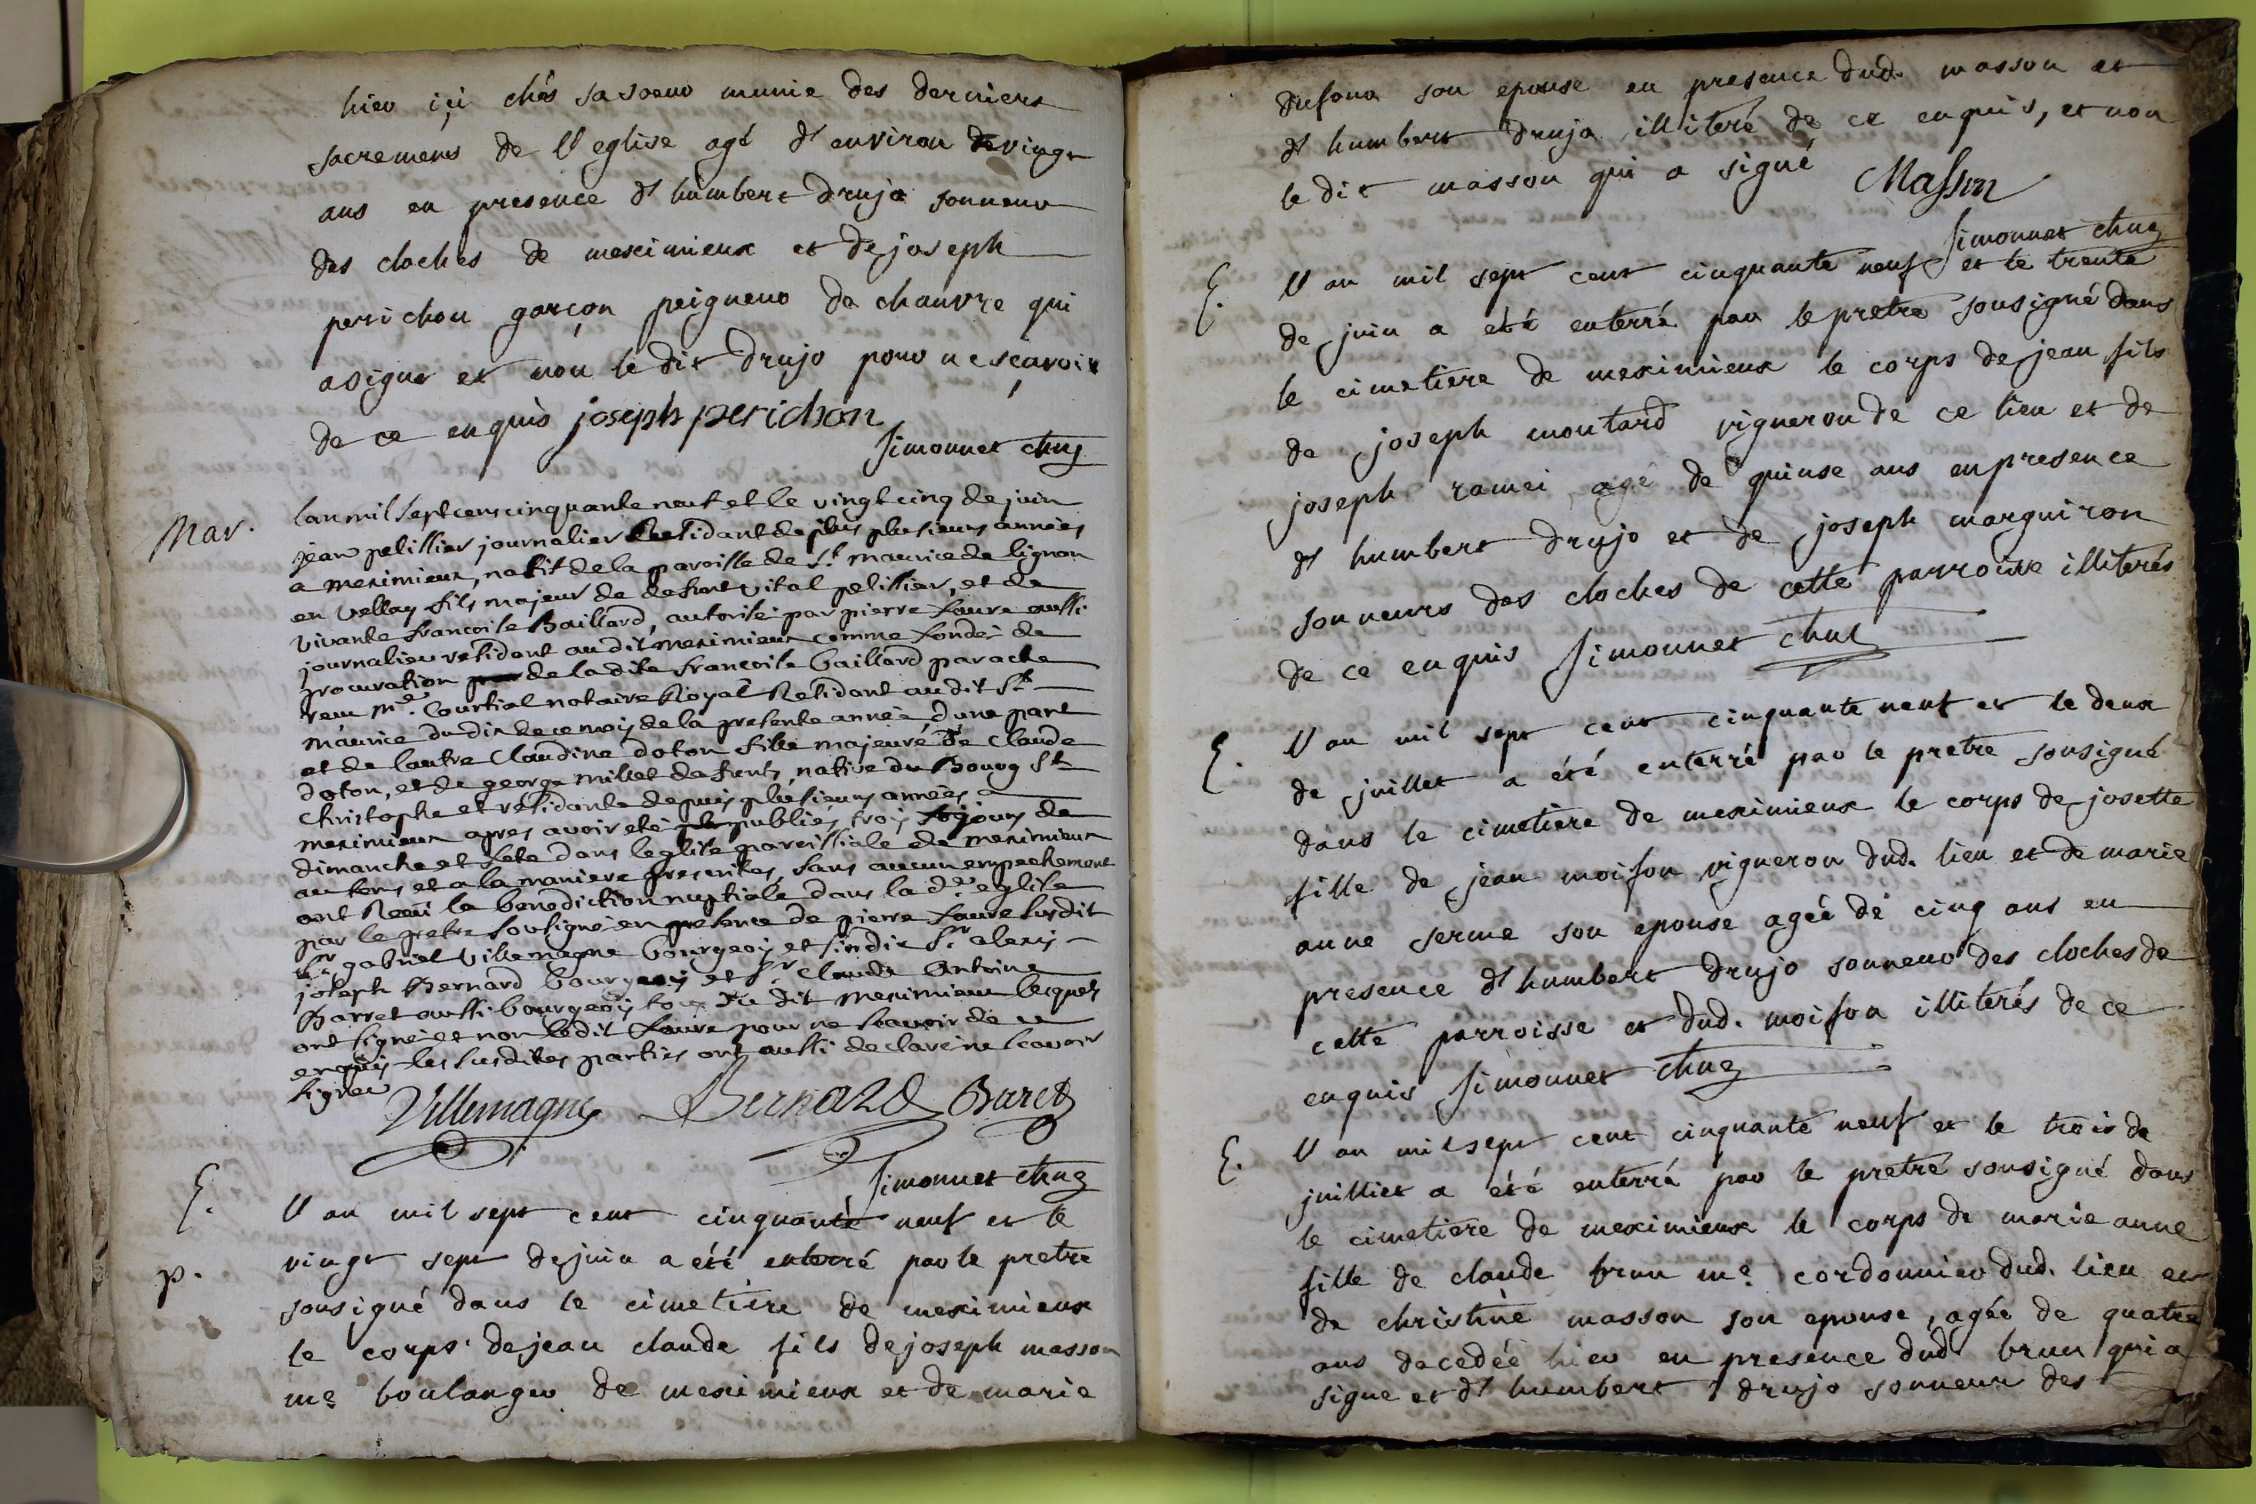 hier içi chés sa soeur munie des derniers
sacremens de l'eglise agé d'environ de vingt
ans en presence d'humbert drujo sonneur
des cloches de meximieux et de joseph
perichon garçon peigneur de chanvre qui
a signé et non le dit drujo pour ne sçavoir
de ce enquis joseph perichon
Simonnet
Mar.
lan mil sept cens cinquante neuf et le vingt cinq de juin
jean pelissier journalier Residant depuis plusieurs années
a meximieux, natif de la paroisse de St. maurice de lignon
en Vellay fils majeur de defunt Vital pelissier, et de
vivante francoise Baillard, autorisé par pierre faure aussi
journalier residant audit meximieux comme fondé de
procuration de ladite francoise baillard par acte
recu me. Courtial notaire Royal Residant audit St.
maurice du dix de ce mois de la presente année d'une part
et de lautre Claudine doton fille majeure de Claude
doton, et de george millet defunts, native du Bourg St.
Christophe et residante depuis plusieurs années a
meximieux apres avoir eté publiés trois jours de
dimanche et fete dans leglise paroissiale de meximieux
au tems et a la maniere prescrites, sans aucun empechement
ont Recu la benediction nuptiale dans la de. eglise
par le pretre soussigné en presence de pierre faure susdit
Sr. gabriel Villemagne bourgeois et sindic Sr. alexis
joseph Bernard bourgeois et Sr. Claude Antoine
Barret aussi bourgeois tous du dit meximieux lesquels
ont signé et non ledit faure pour ne scavoir de ce
enquis les susdites parties ont aussi declaré ne scavoir
signer
Villemagne Bernard Baret
Simonnet
E.
l'an mil sept cent cinquante neuf et le
p.
vingt sept de juin a été enterré par le pretre
sousigné dans le cimetiere de meximieux
le corps de jean claude fils de joseph masson
me boulanger de meximieux et de marie
dufour son epouse en presence dud. masson et
d'humbert drujo illiteré de ce enquis, et non
le dit masson qui a signé
Masson
Simonnet
E.
l'an mil sept cent cinquante neuf et le trente
de juin a été enterré par le pretre sousigné dans
le cimetiere de meximieux le corps de jean fils
de joseph moutard vigneron de ce lieu et de
joseph ramei agé de quinse ans en presence
d'humbert drujo et de joseph marguiron
sonneurs des cloches de cette parroisse illiterés
de ce enquis Simonnet
E.
l'an mil sept cent cinquante neuf et le deux
de juillet a été enterré par le pretre sousigné
dans le cimetiere de meximieux le corps de josette
fille de jean moison vigneron dud. lieu et de marie
anne serme son epouse agée de cinq ans en
presence d'humbert drujo sonneur des cloches de
cette parroisse et dud. moison illiterés de ce
enquis Simonnet
E.
l'an mil sept cent cinquante neuf et le trois de
juilliet a été enterré par le pretre sousigné dans
le cimetiere de meximieux le corps de marie anne
fille de claude brun me. cordonnier dud. lieu et
de christine masson son epouse, agée de quatre
ans decedée hier en presence dud. brun qui a
signe et d'humbert drujo sonneur des